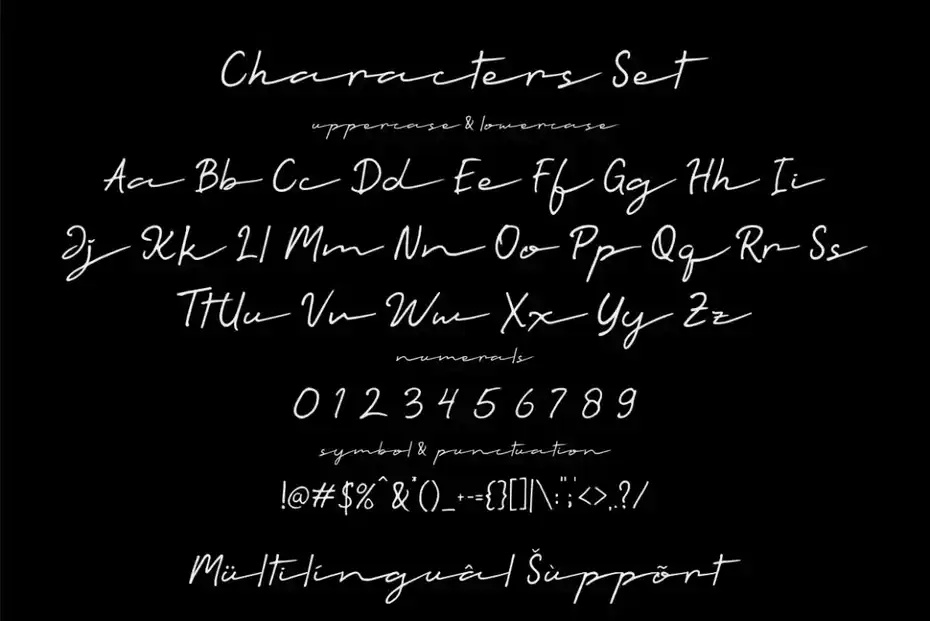 Characters Set
uppercase & lowercase
Aa Bb Cc Dd Ee Ff Gg Hh Ii
Jj Kk Ll Mm Nn Oo Pp Qq Rr Ss
Tt Uu Vv Ww Xx Yy Zz
numerals
0 1 2 3 4 5 6 7 8 9
symbol & punctuation
!@#$%^&*()_+-={}[]|\:";'<>,.?/
Mültilínguâl Šùppõrt